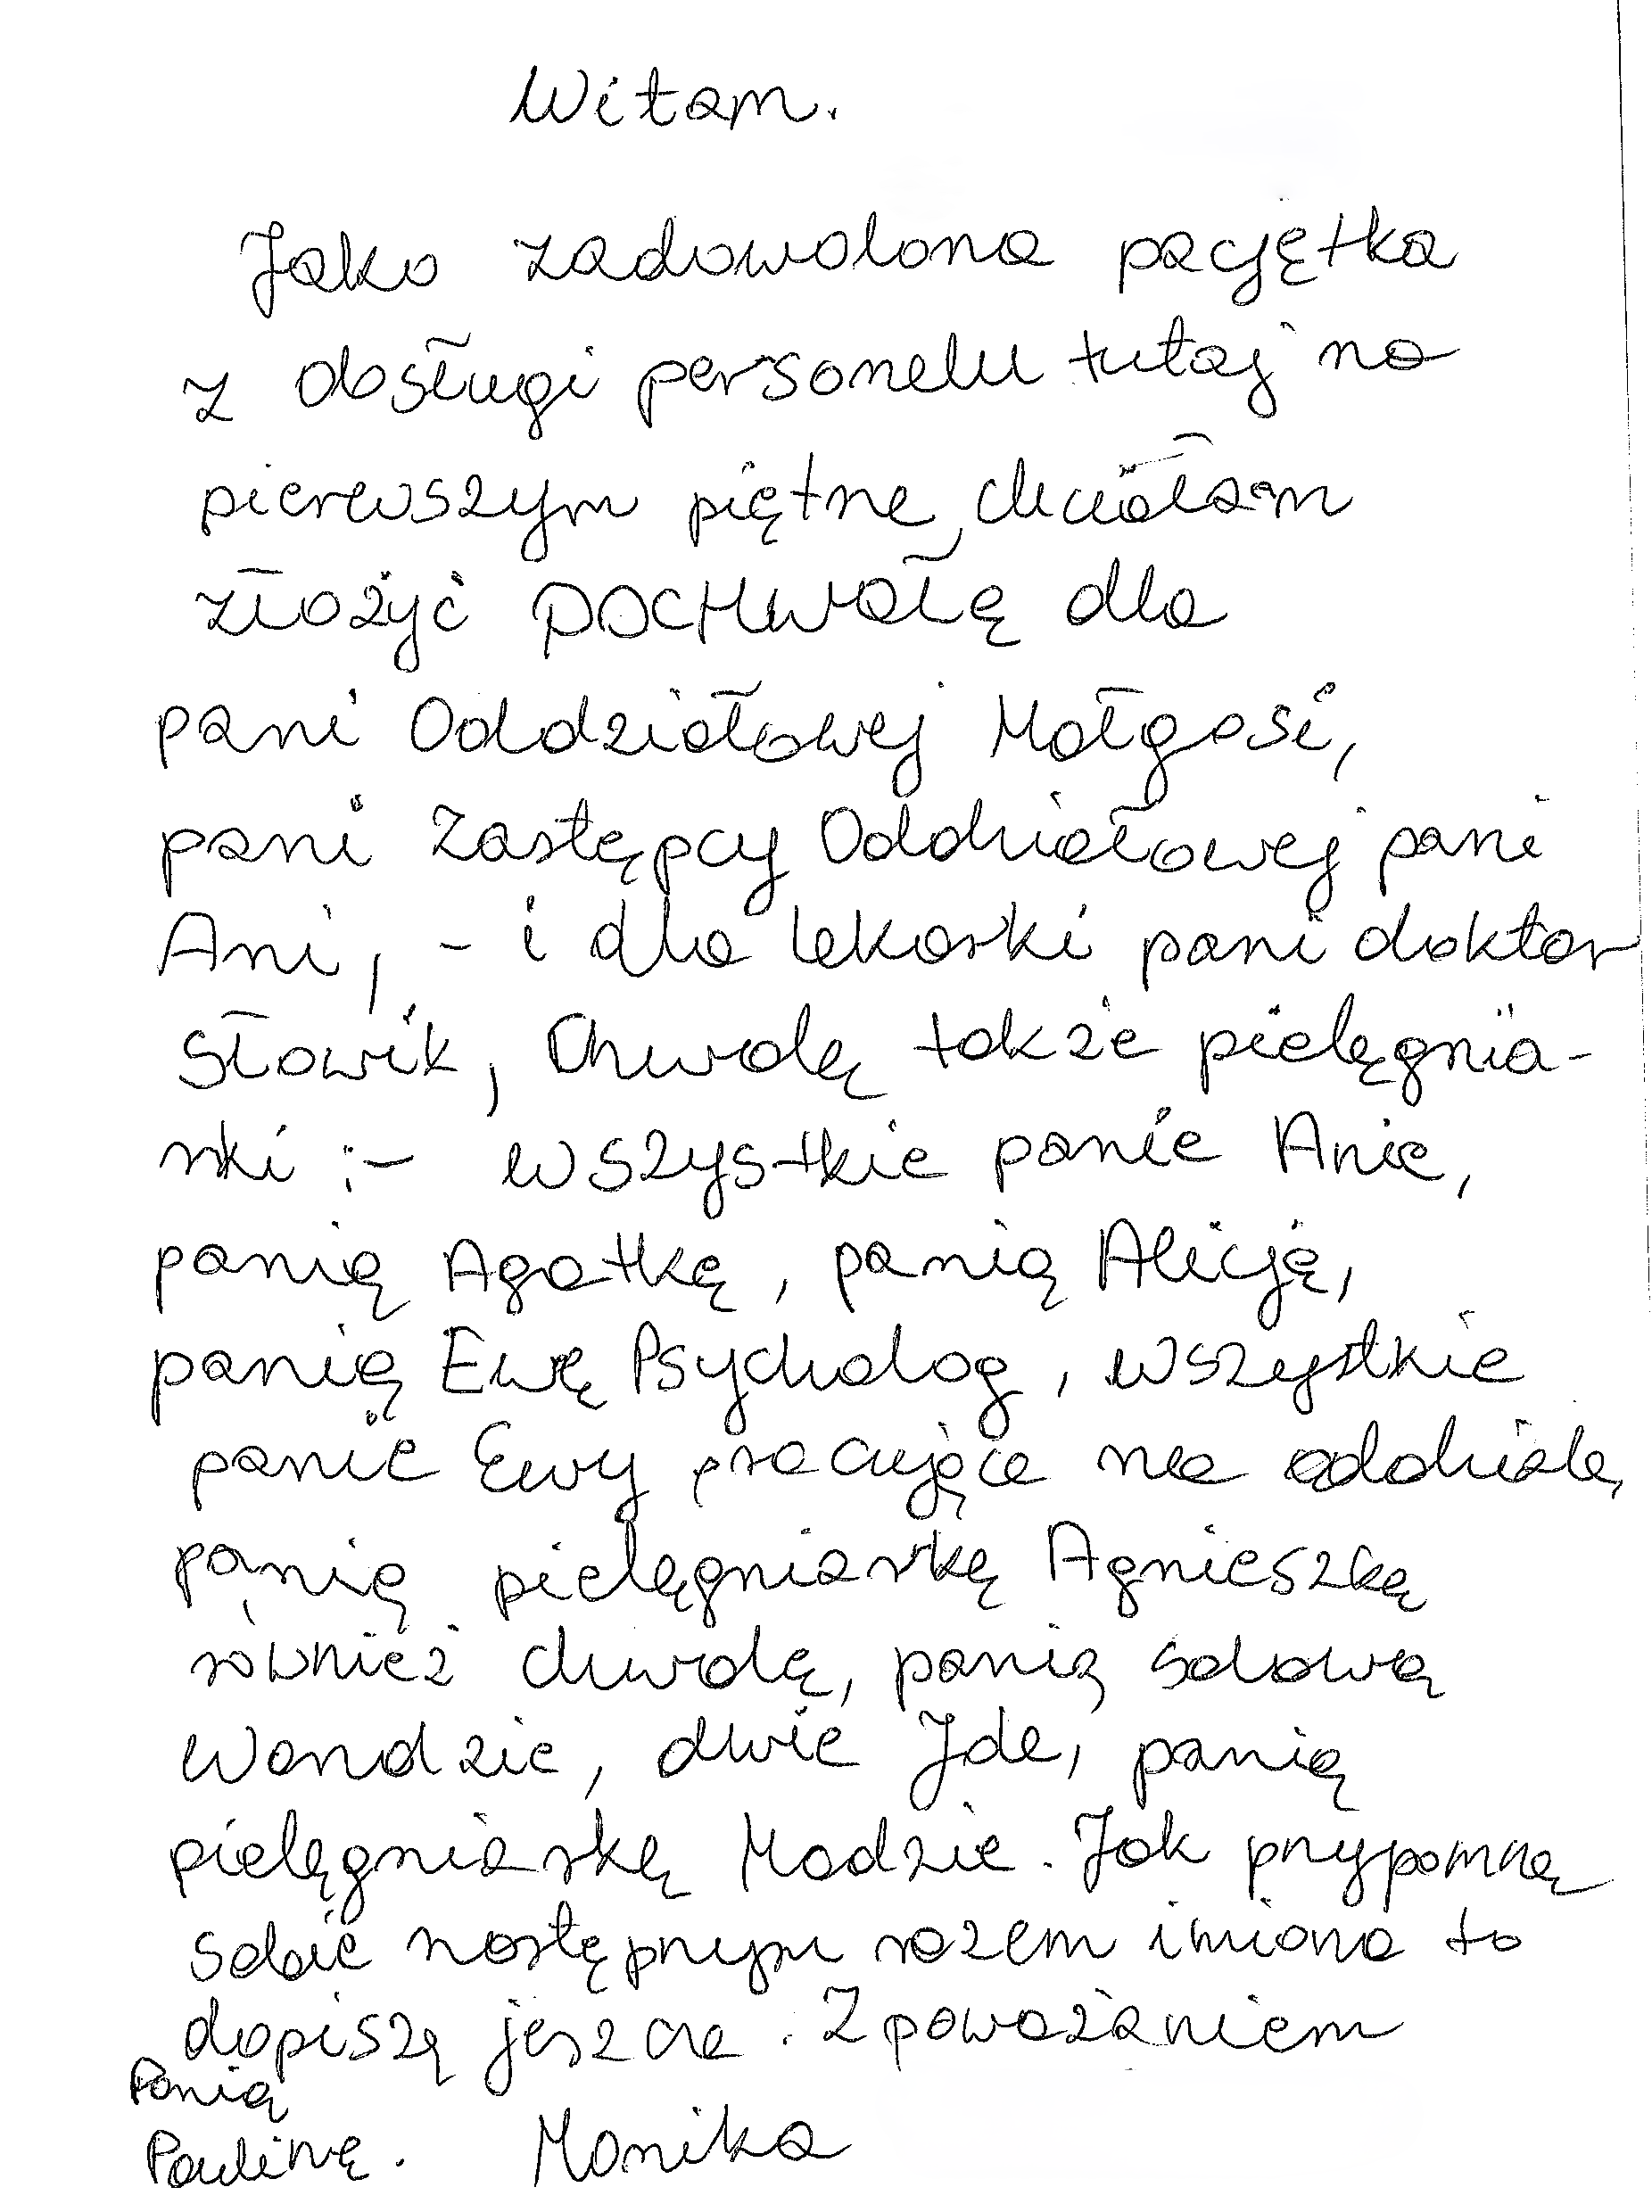 Witam.
Jako zadowolona pacjętka
z obsługi personelu tutaj na
pierwszym piętne, chciałam
złożyć POCHWAŁĘ dla
pani Oddziałowej Małgosi,
pani Zastępcy Oddziałowej pani
Ani, - i dla lekarki pani doktor
Słowik, Chwalę także pielęgnia-
rki :- wszystkie panie Anie,
panią Agatkę, panią Alicję,
panią Ewę Psycholog, wszystkie
panie Ewy pracujące na oddziale,
panią pielęgniarkę Agnieszkę
również chwalę, panią salową
Wandzie, dwie Ide, panią
pielęgniarkę Madzie. Jak przypomnę
sobie następnym razem imiona to
dopiszę jeszcze. Z poważaniem
Panią
Paulinę. Monika